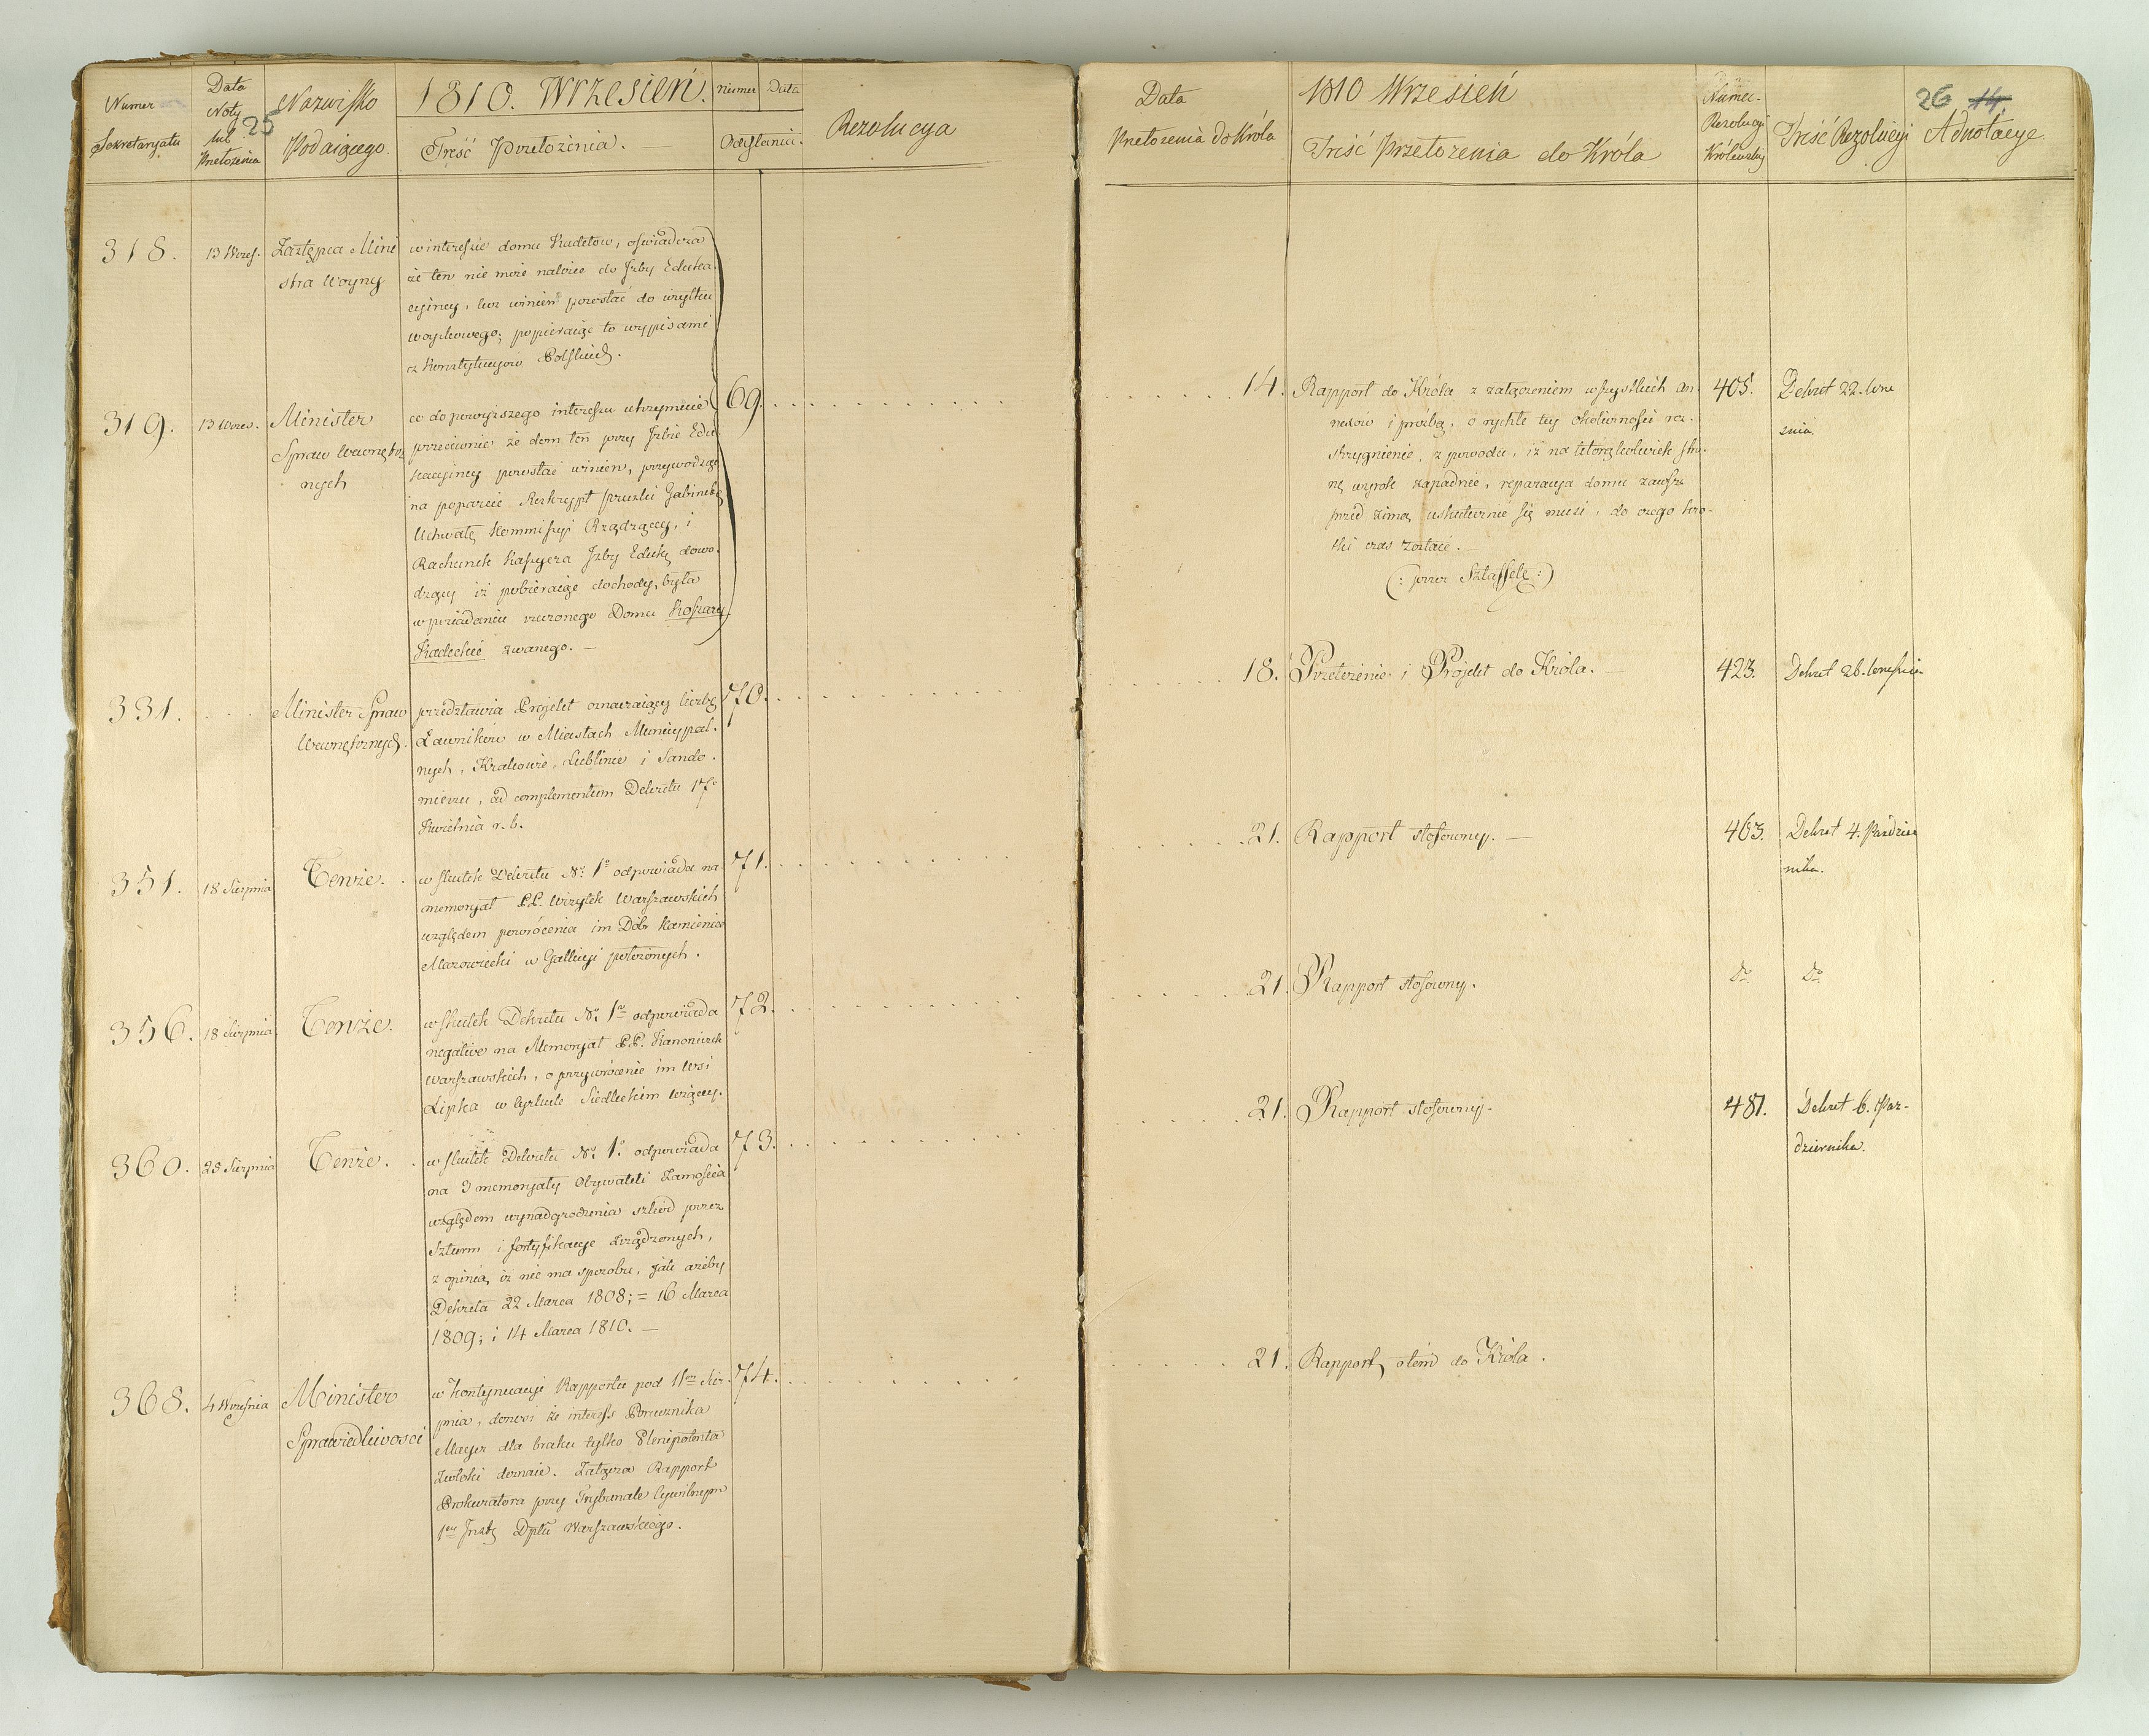 Numer
Sekretaryatu
Data
Noty
lub
Przełożenia
25
Nazwisko
Podaiącego.
1810. Wrzesień.
Treść Przełożenia. —
Numer
Data
Odesłania.
Rezolucya
318.
13 Wrześ.
Zastępca Mini
stra Woyny
w interesie domu Kadetow, oświadcza
że ten nie może należeć do Izby Eduka
cyiney, lecz winien pozostać do użytku
woyskowego; popieraiąc to wypisami
z Konstytucyow Polskich.
319.
13 Wrzes.
Minister
Spraw Wewnętrz
nych
co do powyższego interesu utrzymuie
przeciwnie że dom ten przy Izbie Edu
kacyiney pozostać winien, przywodząc
na poparcie Reskrypt pruski Gabinet.
Uchwałę Kommissyi Rządzącey, i
Rachunek Kassyera Izby Eduk. dowo.
dzący iż pobieraiąc dochody, była
w posiadaniu rzeczonego Domu Koszary
Kadeckie zwanego. —
69.
331.
Minister Spraw
Wewnętrznych.
przedstawia Projekt oznaczaiący liczbę
Ławników w Miastach Municypal.
nych, Krakowie, Lublinie i Sando.
mierzu, ad complementum Dekretu 17º
Kwietnia r. b.
70.
351.
18 Sierpnia
Tenże.
w skutek Dekretu Nº 1º odpowiada na
memoryał PP. Wizytek Warszawskich
względem powrócenia im Dóbr Kamienia
Mazowiecki w Gallicyi położonych.
71.
356.
18 Sierpnia
Tenże.
w skutek Dekretu Nº 1º odpowiada
negative na Memoryał PP. Kanoniczek
Warszawskich, o przywrócenie im Wsi
Lipka w Cyrkule Siedleckim leżącey.
72.
360.
25 Sierpnia
Tenże.
w skutek Dekretu Nº 1º odpowiada
na 3 memoryały Obywateli Zamościa
względem wynadgrodzenia szkód przez
szturm i fortyfikacye zrządzonych,
z opinią iż nie ma sposobu, jak ażeby
Dekreta 22 Marca 1808; = 16 Marca
1809; i 14 Marca 1810. —
73.
368.
4 Września
Minister
Sprawiedliwosci
w kontynuacyi Rapportu pod 11m Sier.
pnia, donosi że interess Porucznika
Mayer dla braku tylko Plenipotenta
zwłoki doznaie. Załącza Rapport
Prokuratora przy Trybunale Cywilnym
1ey Instt Dptu Warszawskiego.
74.
Data
Przełożenia do Króla
1810 Wrzesień
Treść Przełożenia do Króla
Numer
Rezolucyi
Królewskiey
Treść Rezolucyi
26 14.
Adnotacye
14.
Rapport do Króla z załączeniem wszystkich an.
nexow i prozbą, o rychłe tey okoliczności roz.
strzygnienie, z powodu, iż na którąkolwiek stro.
nę wyrok zapadnie, reparacya domu zawsze
przed zimą uskutecznić się musi, do czego kró.
tki czas zostaie. —
(: przez Sztaffetę :)
405.
Dekret 22. Wrze
śnia.
18.
Przełożenie i Projekt do Króla. —
423.
Dekret 26. Września
21.
Rapport stosowny. —
463.
Dekret 4. Paździer
nika.
21.
Rapport stosowny.
dº
dº
21.
Rapport stosowny.
481.
Dekret 6. Paź-
dziernika.
21.
Rapport o tém do Króla.